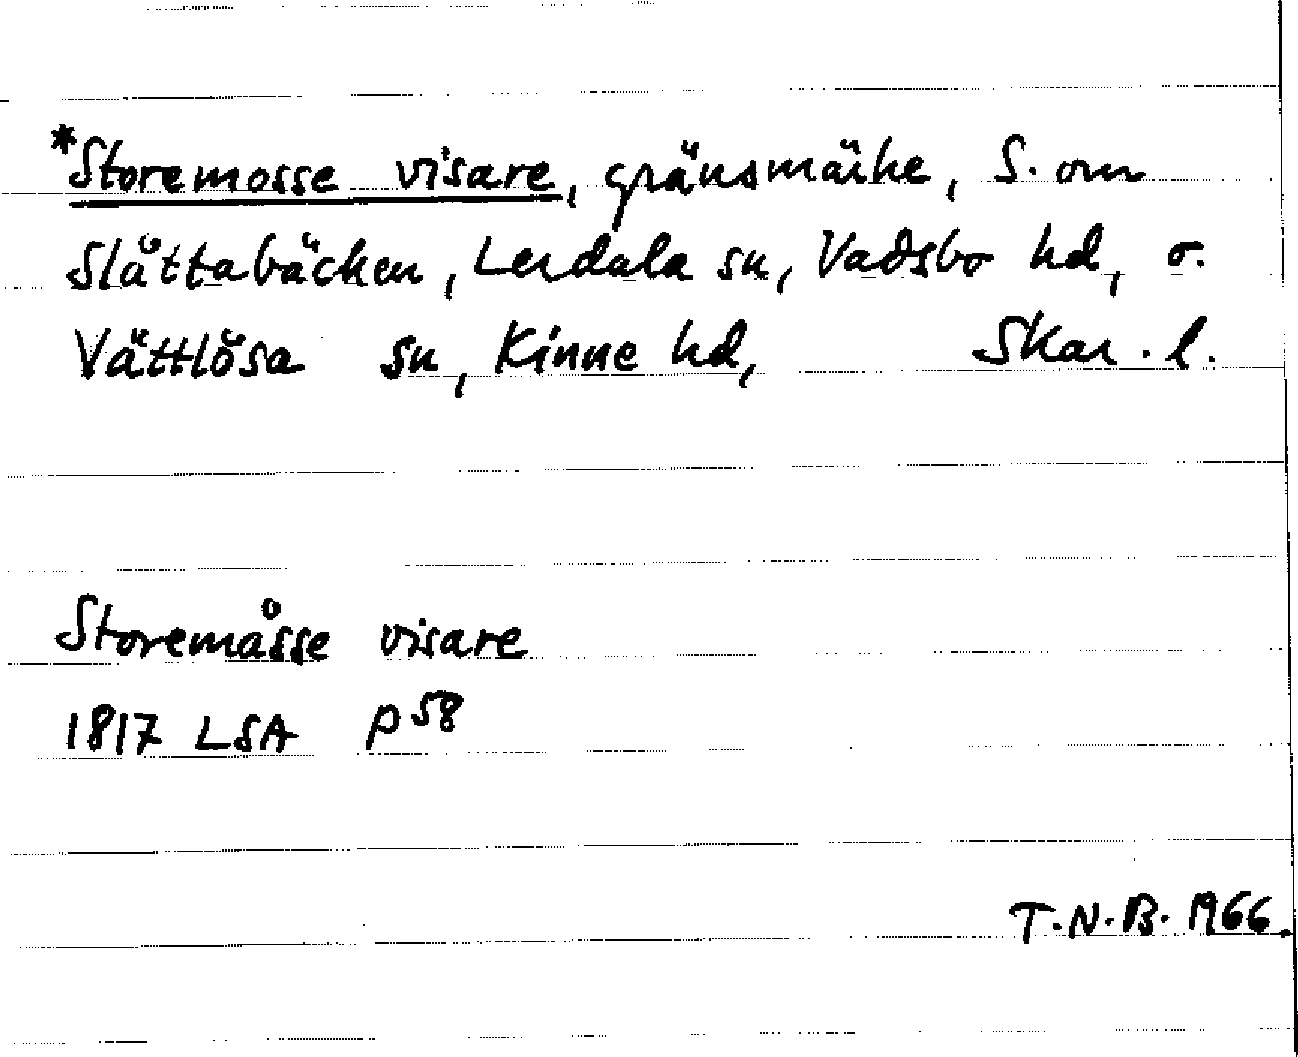 *Storemosse visare, gränsmärke, S. om
Slåttabäcken, Lerdala sn, Vadsbo hd, o.
Vättlösa sn, Kinne hd, Skar. l.
Storemåsse visare
1817 LSA P 58
T.N.B. 1966.